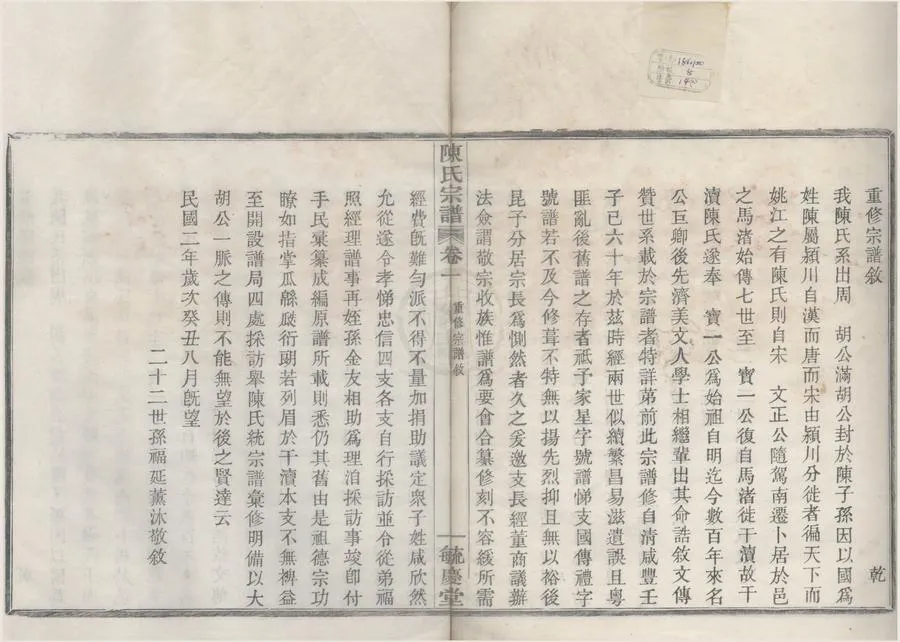 重修宗譜敘
乾
我陳氏系出周　胡公滿胡公封於陳子孫因以國爲
姓陳屬潁川自漢而唐而宋由潁川分徙者徧天下而
姚江之有陳氏則自宋　文正公隨駕南遷卜居於邑
之馬渚始傳七世至　寶一公復自馬渚徙干瀆故干
瀆陳氏遂奉　寶一公爲始祖自明迄今數百年來名
公巨卿後先濟美文人學士相繼輩出其命誥敘文傳
贊世系載於宗譜者特詳苐前此宗譜修自清咸豐壬
子已六十年於茲時經兩世似續繁昌易滋遺誤且粵
匪亂後舊譜之存者祗予家星字號譜悌支國傳禮字
號譜若不及今修葺不特無以揚先烈抑且無以裕後
昆子分居宗長爲惻然者久之爰邀支長經董商議辦
法僉謂敬宗收族惟譜爲要會合纂修刻不容緩所需
陳氏宗譜
卷一
重修宗譜敘
毓慶堂
經費既難勻派不得不量加捐助議定衆子姓咸欣然
允從遂令孝悌忠信四支各支自行採訪並令從弟福
照經理譜事再姪孫金友相助爲理洎採訪事竣卽付
手民彙纂成編原譜所載則悉仍其舊由是祖德宗功
瞭如指掌瓜緜瓞衍朗若列眉於干瀆本支不無裨益
至開設譜局四處採訪舉陳氏統宗譜彙修明備以大
胡公一脈之傳則不能無望於後之賢達云
民國二年歲次癸丑八月既望
二十二世孫福延薰沐敬敘